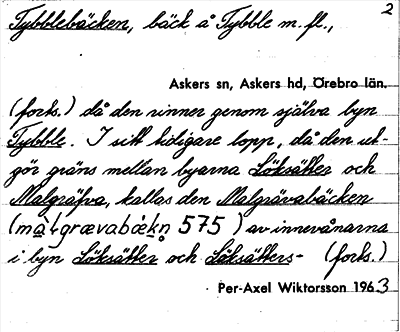 2
Tybblebäcken, bäck å Tybble m.fl.,
Askers sn, Askers hd, Örebro län.
(forts.) då den rinner genom själva byn
Tybble. I sitt tidigare lopp, då den ut-
gör gräns mellan byarna Löksätter och
Malgräfva, kallas den Malgrävabäcken
(màlgrævabæ̀kn̥ 575 ) av innevånarna
i byn Löksätter och Löksätters- (forts.)
Per-Axel Wiktorsson 1963